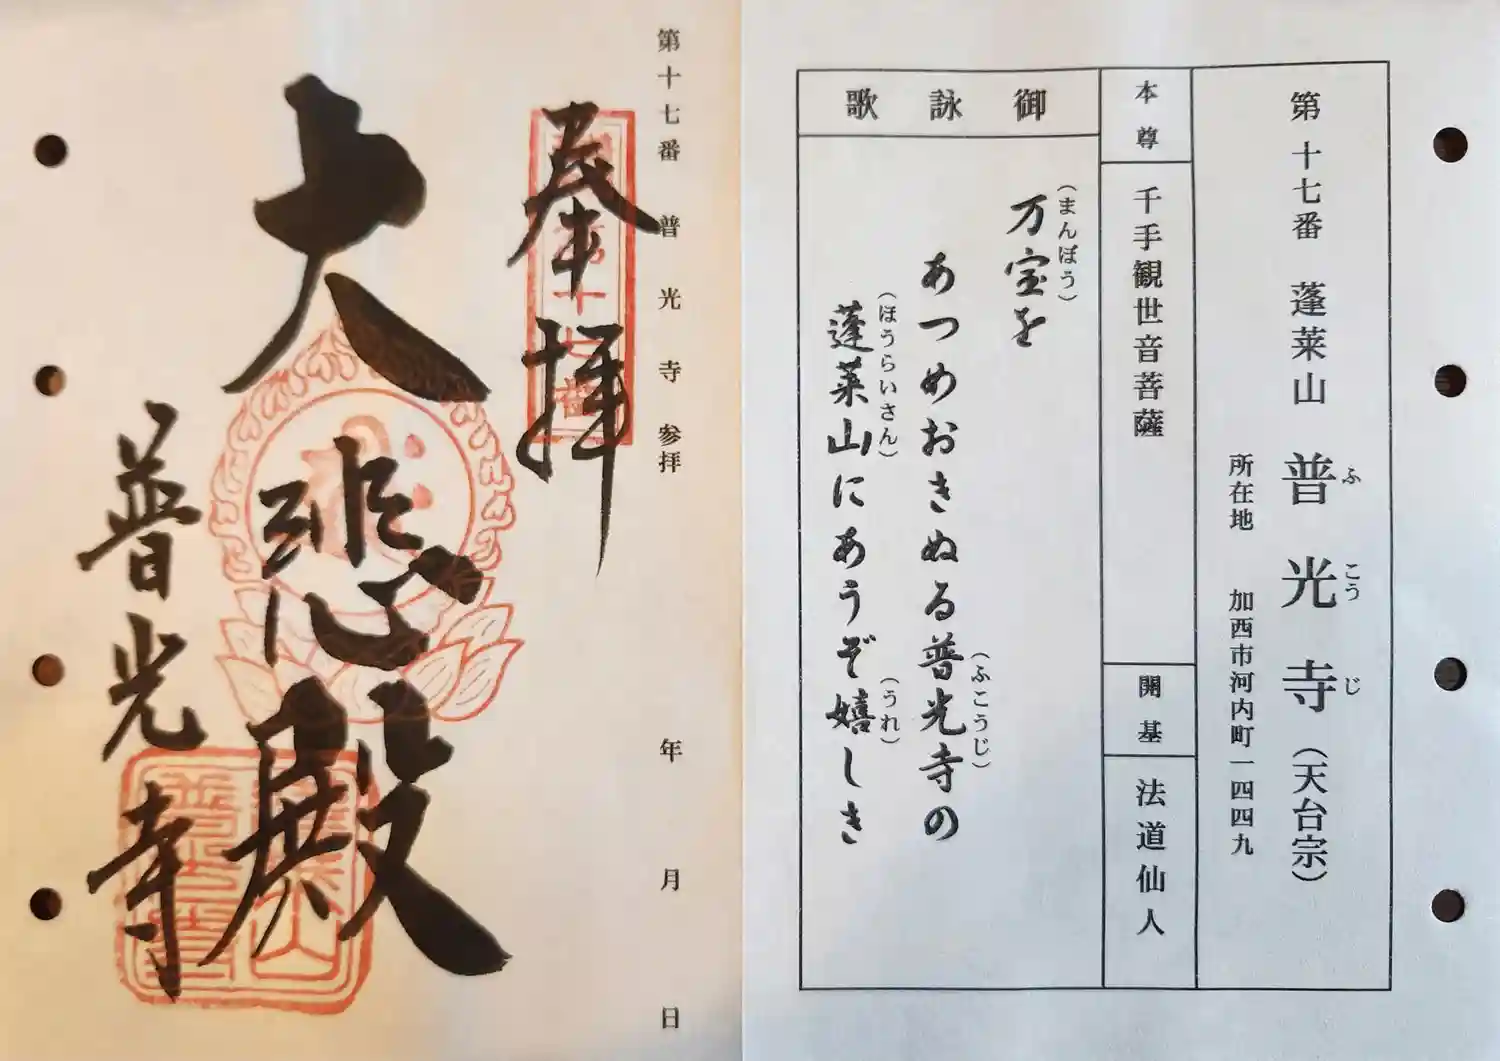 第十七番 蓬莱山 普光寺（天台宗）
ふ こう じ
所在地 加西市河内町一四四九
本尊
千手観世音菩薩
開基
法道仙人
御詠歌
（まんぼう）
万宝を
あつめおきぬる普光寺の
（ふこうじ）
（ほうらいさん）
（うれ）
蓬莱山にあうぞ嬉しき
第十七番 普光寺参拝 年 月 日
奉拝
大悲殿
普光寺